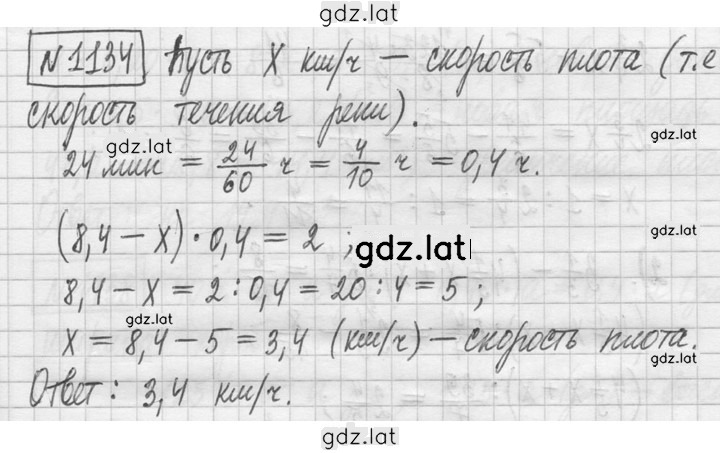 gdz.lat
№1134 Пусть X км/ч — скорость плота (т.е
скорость течения реки).
gdz.lat
gdz.lat
24 мин = 24/60 ч = 4/10 ч = 0,4 ч.
gdz.lat
(8,4 – X) · 0,4 = 2 ;
gdz.lat
8,4 – X = 2 : 0,4 = 20 : 4 = 5 ;
gdz.lat
X = 8,4 – 5 = 3,4 (км/ч) – скорость плота.
gdz.lat
Ответ: 3,4 км/ч.
gdz.lat